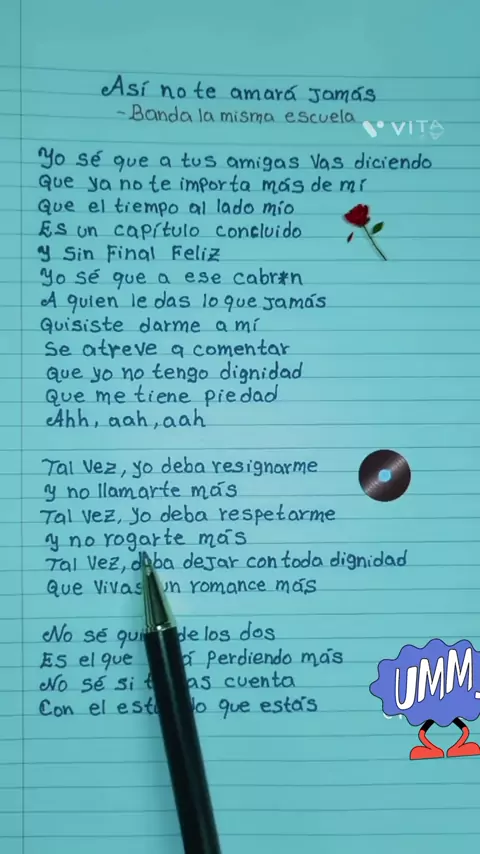 Así no te amará jamás
- Banda la misma escuela
VITA
Yo sé que a tus amigas vas diciendo
Que ya no te importa más de mí
Que el tiempo al lado mío
Es un capítulo concluido
Y sin Final Feliz
Yo sé que a ese cabr*n
A quien le das lo que jamás
Quisiste darme a mí
Se atreve a comentar
Que yo no tengo dignidad
Que me tiene piedad
Ahh, aah, aah
Tal vez, yo deba resignarme
Y no llamarte más
Tal vez, yo deba respetarme
Y no rogarte más
Tal vez, deba dejar con toda dignidad
Que vivas un romance más
No sé de los dos
Es el que perdiendo más
No sé si cuenta
Con el que estás
UMM